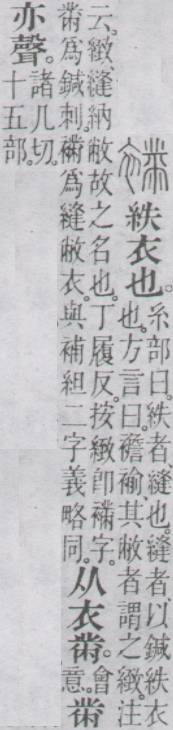 紩衣也。糸部曰。紩者、縫也。縫者、以鍼紩衣也。方言曰。襜褕其敝者謂之緻。注
云。緻、縫納敝故之名也。丁履反。按緻卽襧字。黹爲鍼刺。襧爲縫敝衣。與補組二字義略同。从衣黹。會意。黹
亦聲。諸几切。十五部。